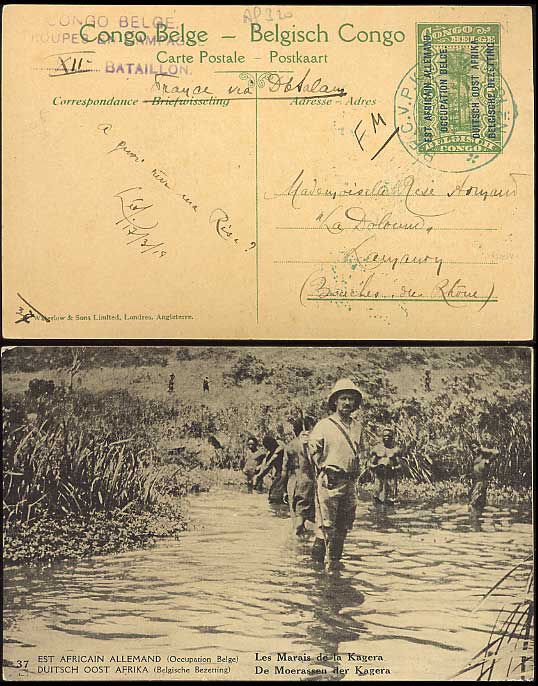 CONGO BELGE.
TROUPES EN CAMPAGNE
XII BATAILLON.
AP320
Congo Belge – Belgisch Congo
Carte Postale – Postkaart
France via
Correspondance – Briefwisseling
Adresse – Adres
CONGO BELGE
EST AFRICAIN ALLEMAND
OCCUPATION BELGE
DUITSCH OOST AFRIKA
BELGISCHE BEZETTING
BELGISCH
CONGO
B.P.C.V.P.K.
FM
A quoi rêve ma Rose?
17/3/18
Mademoiselle Rose Armand
"La
(Bouches du Rhône)
Waterlow & Sons Limited, Londres, Angleterre.
37
EST AFRICAIN ALLEMAND (Occupation Belge)
DUITSCH OOST AFRIKA (Belgische Bezetting)
Les Marais de la Kagera
De Moerassen der Kagera